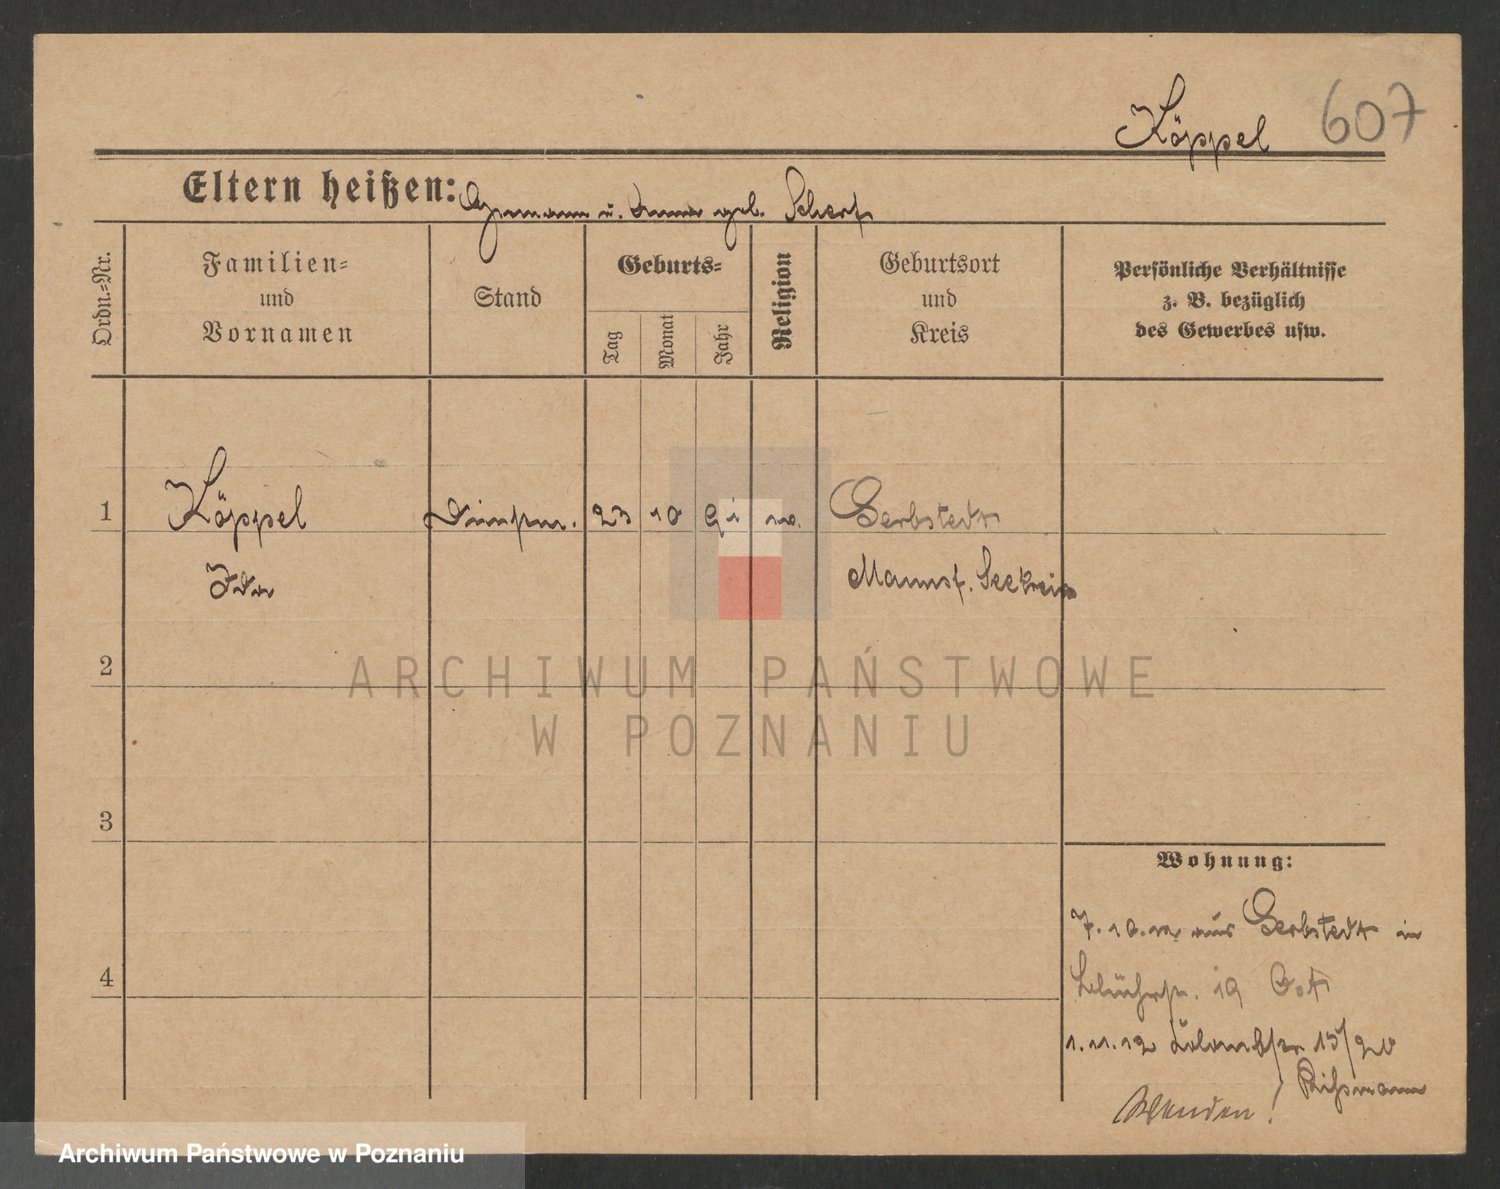 Köppel 607
Eltern heißen: Hermann u. Anna geb. Scherf
Ordn.=Nr.
Familien=
und
Vornamen
Stand
Geburts=
Tag
Monat
Jahr
Religion
Geburtsort
und
Kreis
Persönliche Verhältnisse
z. B. bezüglich
des Gewerbes usw.
1 Köppel 23 10 91 Gerbstedt
Ida Mansf. Seekreis
2
3
4
Wohnung:
7.10.12 aus Gerbstedt in
Blücherstr. 19
1.11.12 15/20
Wenden!
ARCHIWUM PAŃSTWOWE
W POZNANIU
Archiwum Państwowe w Poznaniu